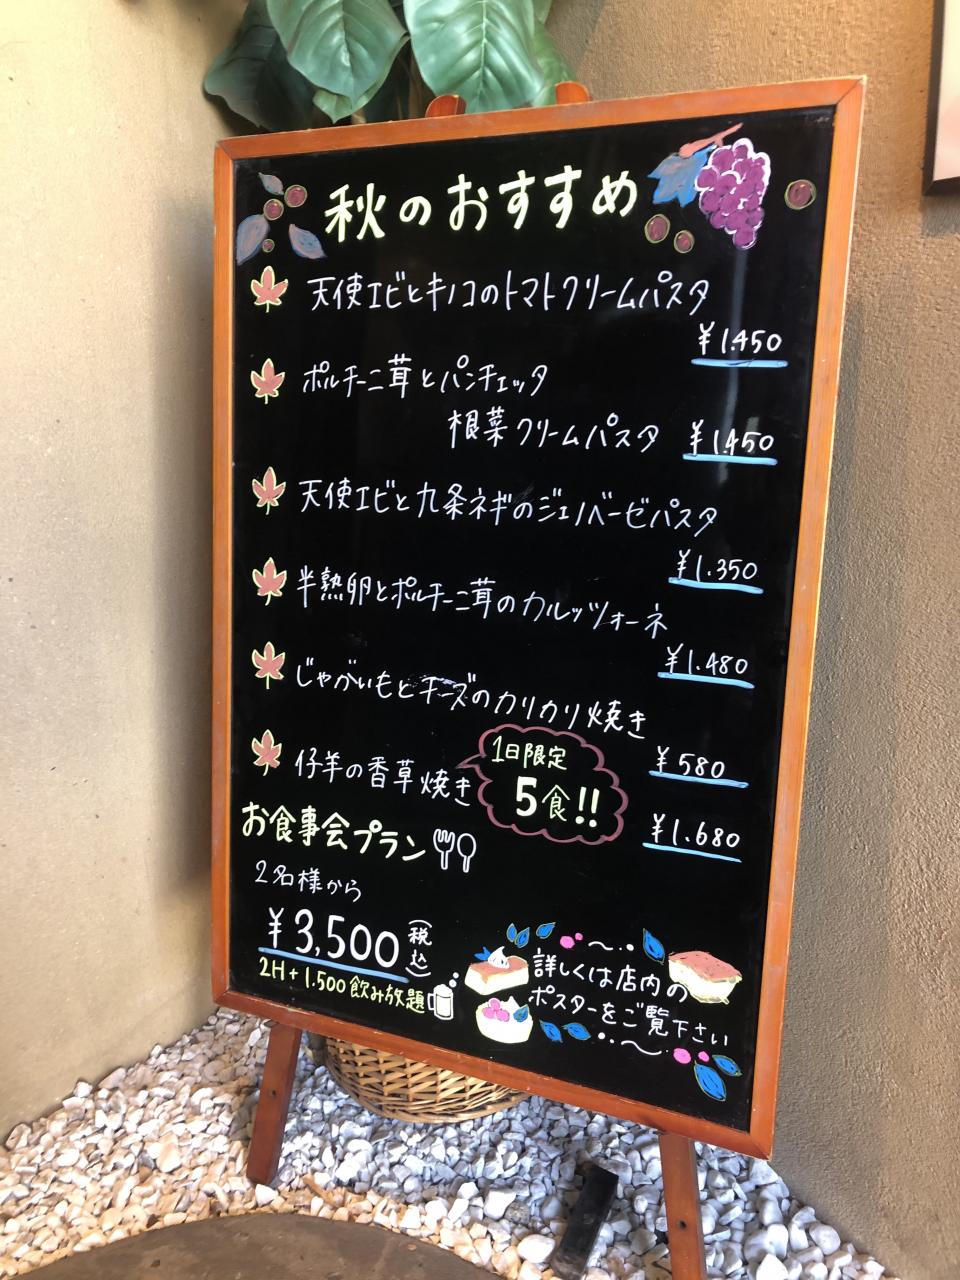 秋のおすすめ
天使エビとキノコのトマトクリームパスタ
¥1.450
ポルチーニ茸とパンチェッタ
根菜クリームパスタ ¥1.450
天使エビと九条ネギのジェノベーゼパスタ
¥1.350
半熟卵とポルチーニ茸のカルッツォーネ
¥1.480
じゃがいもとチーズのカリカリ焼き
¥580
仔羊の香草焼き
1日限定
5食!!
¥1.680
お食事会プラン
2名様から
¥3,500(税込)
2H+1.500飲み放題
詳しくは店内の
ポスターをご覧下さい